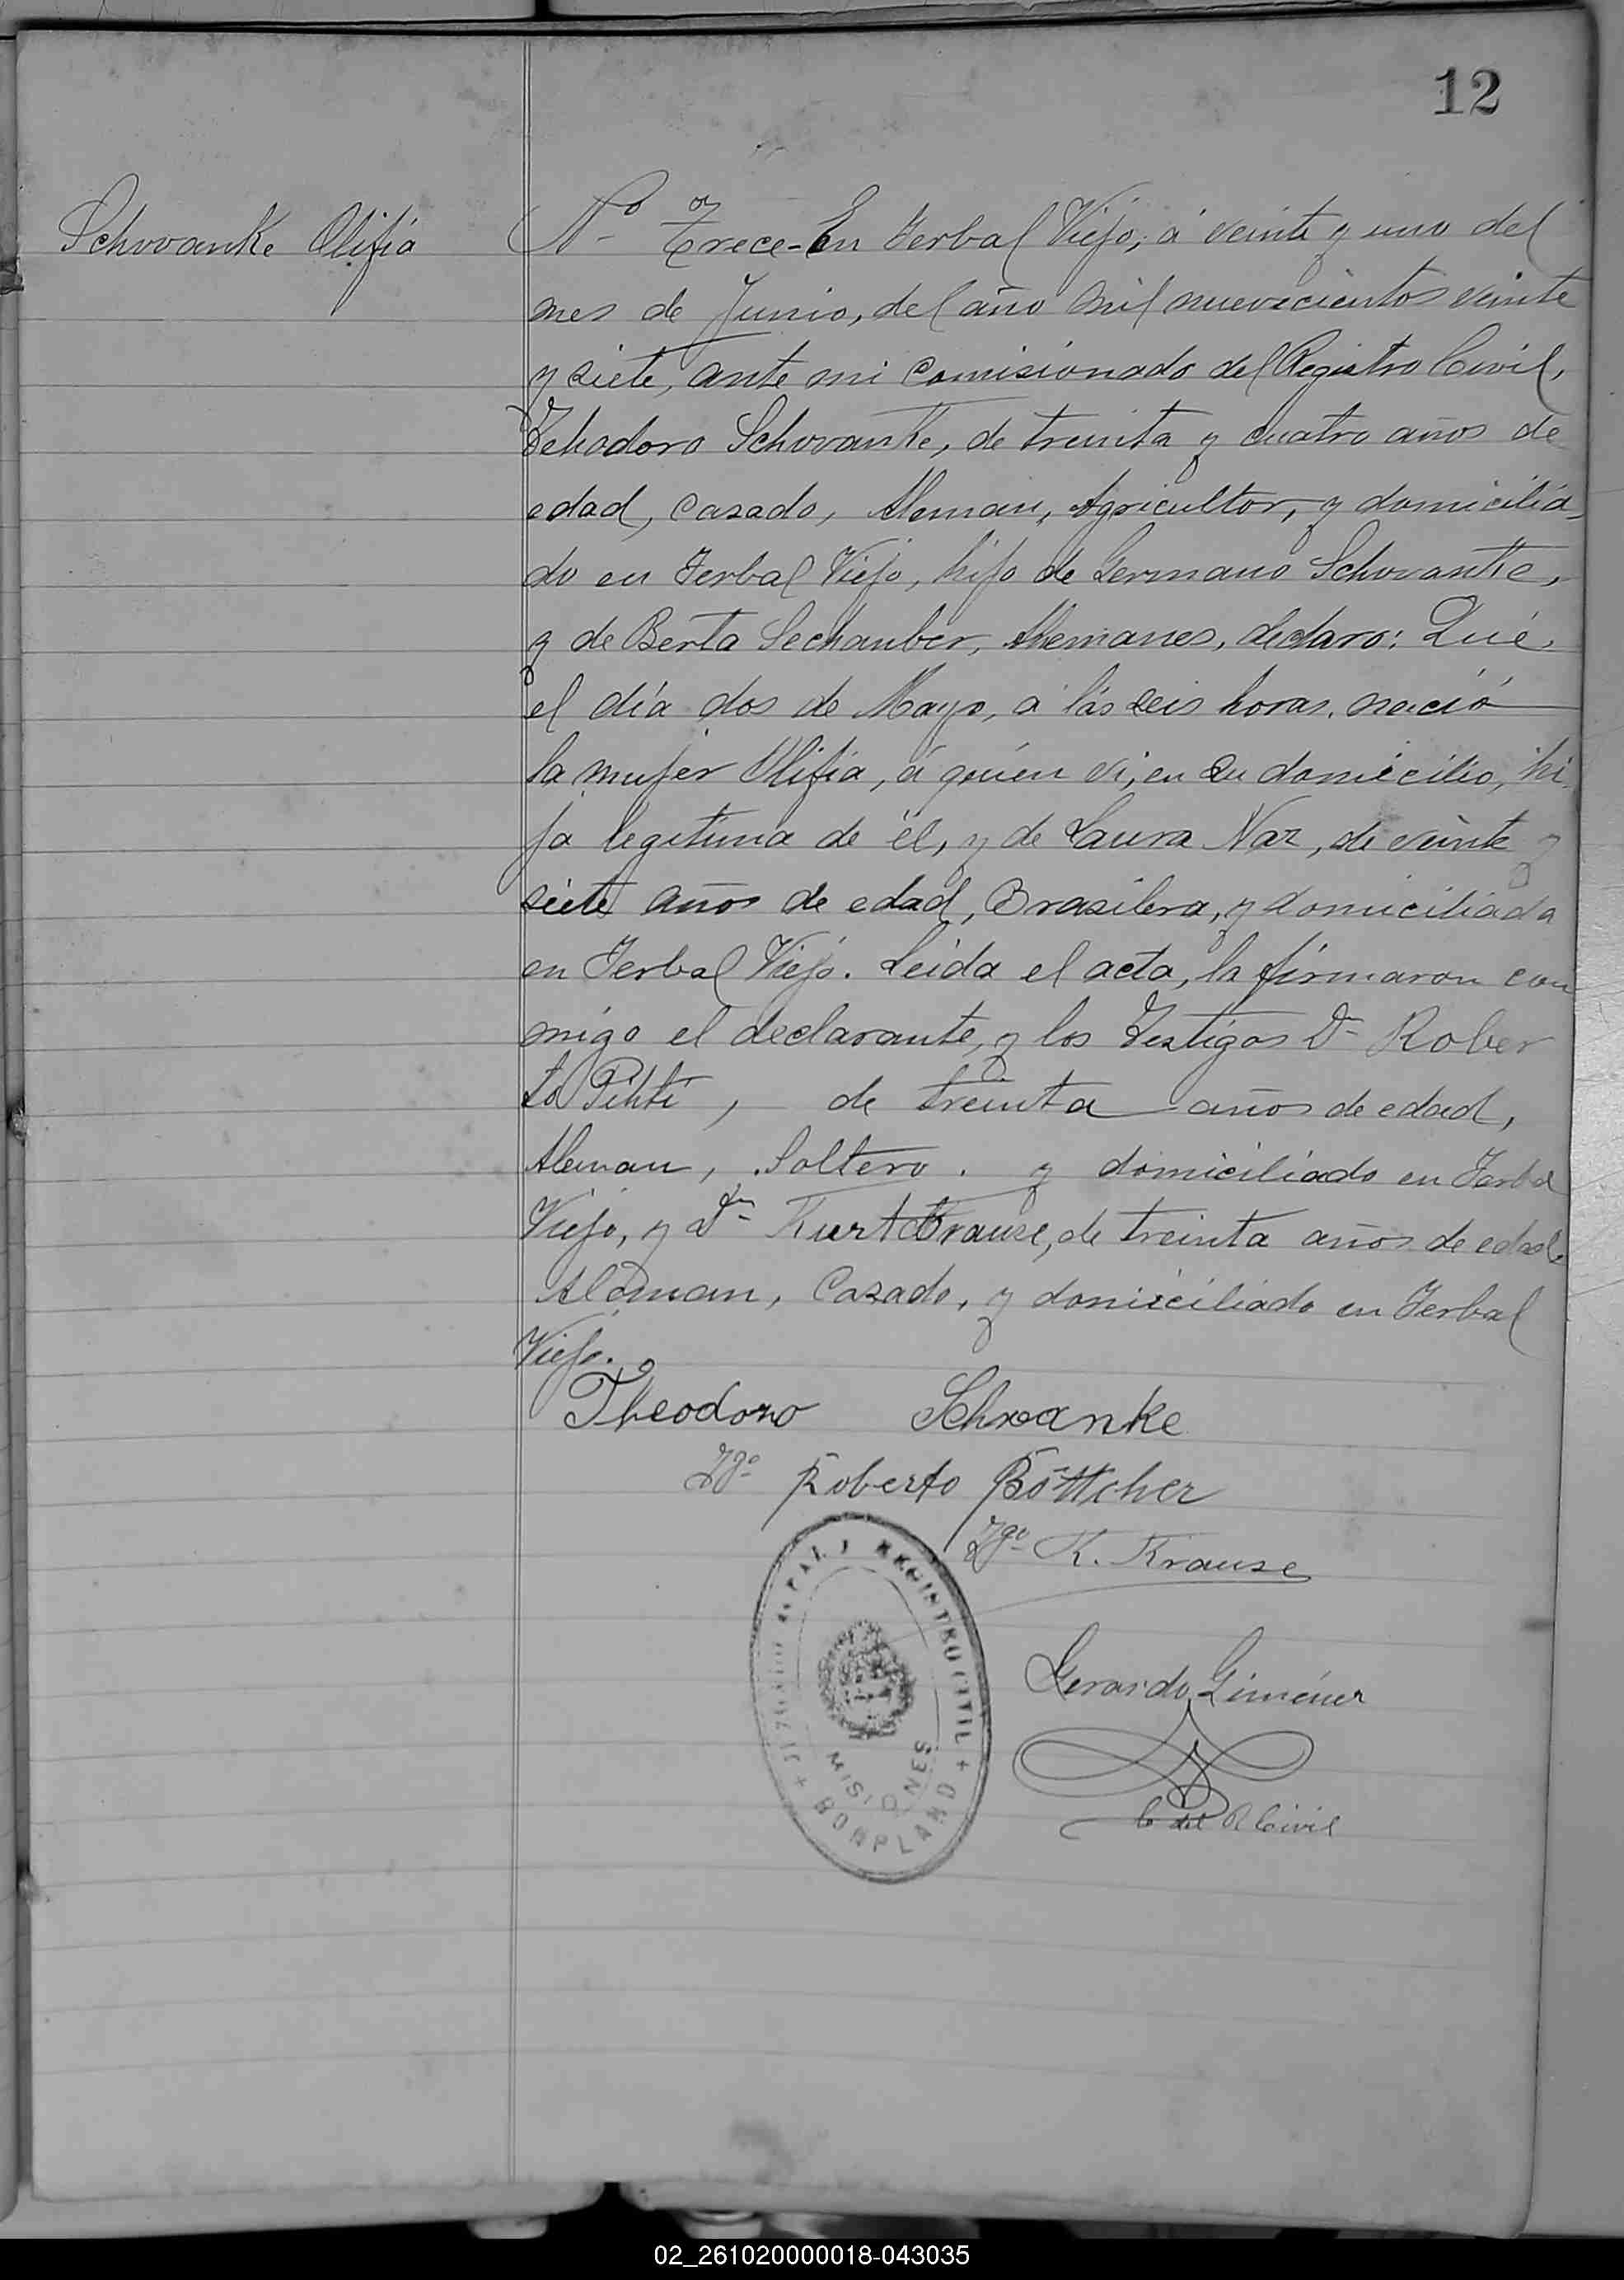 12
Schvvanke Olifia
Nº Trece - En Yerbal Viejo, á veinte y uno del
mes de Junio, del año mil nuevecientos veinte
y siete, ante mi Comisionado del Registro Civil,
Tehodoro Schvvanke, de treinta y cuatro años de
edad, Casado, Aleman, Agricultor, y domicilia
do en Yerbal Viejo, hijo de Germano Schvvanke,
y de Berta Sechauber, Alemanes, declaro: Qué
el día dos de Mayo, a lás seis horas, nació
la mujer Olifia, á quién vi, en su domicilio, hi
ja legitima de él, y de Laura Naz, de veinte y
siete años de edad, Brasilera, y domiciliada
en Yerbal Viejo. Leida el acta, la firmaron con
migo el declarante, y los Testigos Dn Rober
to , de treinta años de edad,
Aleman, Soltero. y domiciliado en Yerbal
Viejo, y Dn Kurt Krause, de treinta años de edad,
Aleman, Casado, y domiciliado en Yerbal
Viejo.
Theodoro Schwanke
Tgo Roberto Böttcher
Tgo K. Krause
Gerardo Giménez
C del R Civil
REGISTRO CIVIL
MISIONES
+ BONPLAND +
02_261020000018-043035